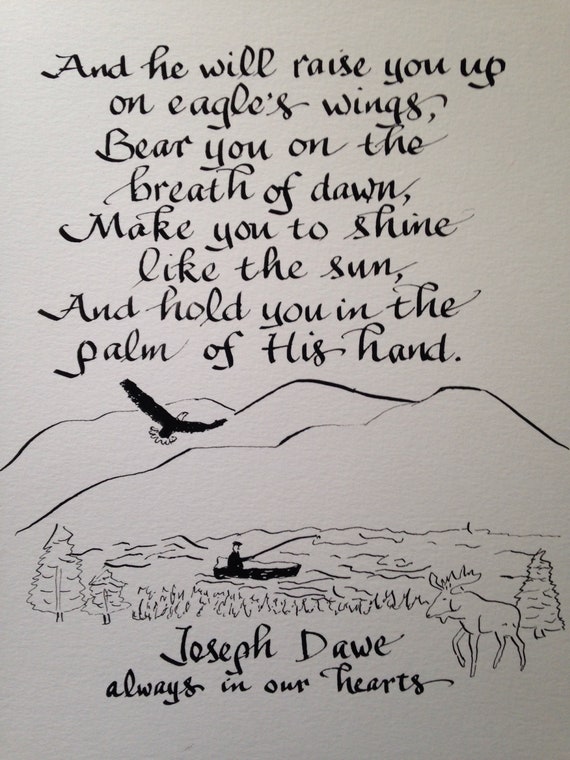 And he will raise you up
on eagle's wings,
Bear you on the
breath of dawn,
Make you to shine
like the sun,
And hold you in the
palm of His hand.
Joseph Dawe
always in our hearts